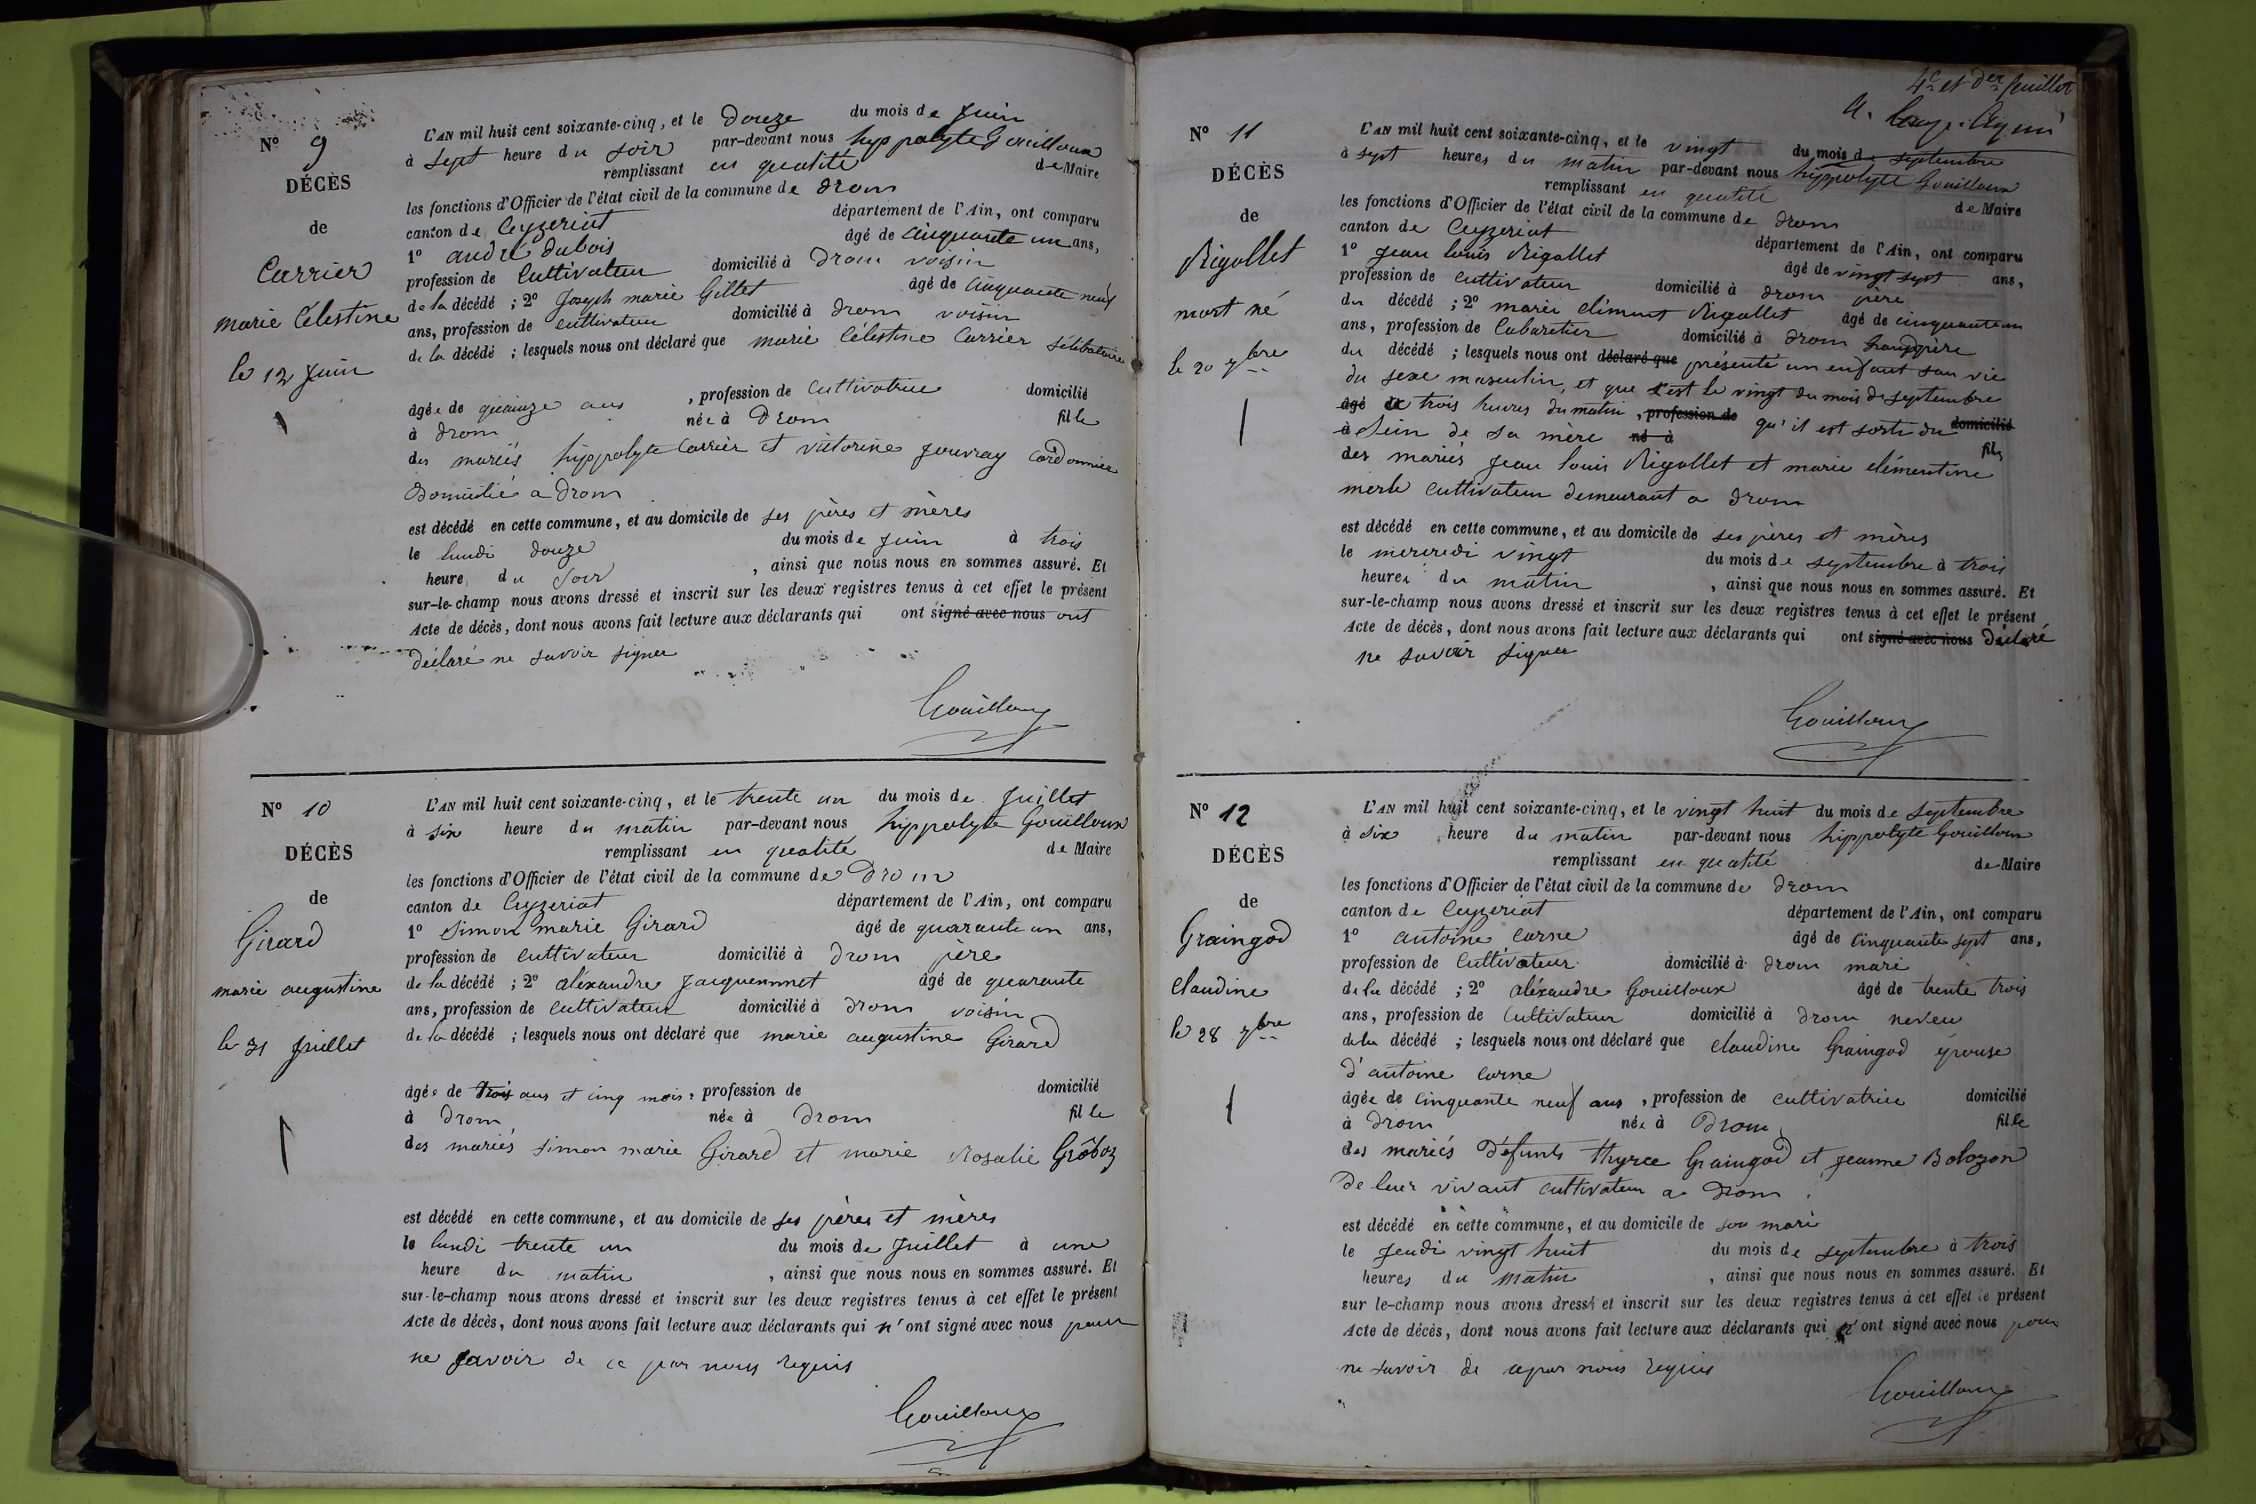 N° 9
DÉCÈS
de
Carrier
marie Célestine
le 12 Juin
L'AN mil huit cent soixante-cinq, et le Douze du mois de Juin
à sept heure du soir par-devant nous hyppolyte Gouilloux
remplissant en qualité de Maire
les fonctions d'Officier de l'état civil de la commune de Drom
canton de Ceyzeriat département de l'Ain, ont comparu
1° andré dubois âgé de Cinquante un ans,
profession de Cultivateur domicilié à Drom voisin
de la décédé ; 2° Joseph marie Gillet âgé de Cinquante neuf
ans, profession de Cultivateur domicilié à Drom voisin
de la décédé ; lesquels nous ont déclaré que marie Célestine Carrier sélibataire
âgée de quainze ans , profession de Cultivatrice domicilié
à Drom née à Drom fille
des mariés hippolyte Carrier et victorine Jouvray Cordonnier
Domicilié a Drom
est décédé en cette commune, et au domicile de ses pères et mères
le lundi douze du mois de Juin à trois
heure du soir , ainsi que nous nous en sommes assuré. Et
sur-le-champ nous avons dressé et inscrit sur les deux registres tenus à cet effet le présent
Acte de décès, dont nous avons fait lecture aux déclarants qui ont signé avec nous ont
déclaré ne savoir signer
Gouilloux
N° 10
DÉCÈS
de
Girard
marie augustine
le 31 Juillet
L'AN mil huit cent soixante-cinq, et le trente un du mois de Juillet
à six heure du matin par-devant nous hippolyte Gouilloux
remplissant en qualité de Maire
les fonctions d'Officier de l'état civil de la commune de Drom
canton de Ceyzeriat département de l'Ain, ont comparu
1° Simon marie Girard âgé de quarante un ans,
profession de Cultivateur domicilié à Drom père
de la décédé ; 2° aléxandre Jacquemmet âgé de quarante
ans, profession de Cultivateur domicilié à Drom voisin
de la décédé ; lesquels nous ont déclaré que marie augustine Girard
âgée de trois ans et cinq mois, profession de domicilié
à Drom née à Drom fille
des mariés simon marie Girard et marie Rosalie Grôboz
est décédé en cette commune, et au domicile de ses pères et mères
le lundi trente un du mois de Juillet à une
heure du matin , ainsi que nous nous en sommes assuré. Et
sur-le-champ nous avons dressé et inscrit sur les deux registres tenus à cet effet le présent
Acte de décès, dont nous avons fait lecture aux déclarants qui n'ont signé avec nous pour
ne savoir de ce par nous requis
Gouilloux
4e et der feuillet
N° 11
DÉCÈS
de
Rigollet
mort né
le 20 7bre
L'AN mil huit cent soixante-cinq, et le vingt du mois de septembre
à sept heures du matin par-devant nous hippolyte Gouilloux
remplissant en qualité de Maire
les fonctions d'Officier de l'état civil de la commune de Drom
canton de Ceyzeriat département de l'Ain, ont comparu
1° Jean louis Rigollet âgé de vingt sept ans,
profession de Cultivateur domicilié à Drom père
du décédé ; 2° marie clément Rigollet âgé de cinquante un
ans, profession de Cabaretier domicilié à Drom Grandpère
du décédé ; lesquels nous ont déclaré que présenté un enfant san vie
du sexe masculin, et que c'est le vingt du mois de septembre
âgé de trois heures du matin, profession de qu'il est sorti du domicilié
à Sein de sa mère né à fils
des mariés Jean louis Rigollet et marie clémentine
merle cultivateur demeurant a Drom
est décédé en cette commune, et au domicile de ses pères et mères
le mercredi vingt du mois de septembre à trois
heures du matin , ainsi que nous nous en sommes assuré. Et
sur-le-champ nous avons dressé et inscrit sur les deux registres tenus à cet effet le présent
Acte de décès, dont nous avons fait lecture aux déclarants qui ont signé avec nous Déclaré
ne savoir signer
Gouilloux
N° 12
DÉCÈS
de
Graingod
Claudine
le 28 7bre
L'AN mil huit cent soixante-cinq, et le vingt huit du mois de septembre
à six heure du matin par-devant nous hippolyte Gouilloux
remplissant en qualité de Maire
les fonctions d'Officier de l'état civil de la commune de Drom
canton de Ceyzeriat département de l'Ain, ont comparu
1° antoine Carne âgé de cinquante sept ans,
profession de Cultivateur domicilié à Drom mari
de la décédé ; 2° aléxandre Gouilloux âgé de trente trois
ans, profession de Cultivateur domicilié à Drom neveu
de la décédé ; lesquels nous ont déclaré que Claudine Graingod épouse
d'antoine Carne
âgée de cinquante neuf ans , profession de cultivatrice domicilié
à Drom née à Drom fille
des mariés défunts thyrce Graingod et Jeanne Bolozon
De leur vivant cultivateur a Drom
est décédé en cette commune, et au domicile de son mari
le Jeudi vingt huit du mois de septembre à trois
heures du matin , ainsi que nous nous en sommes assuré. Et
sur le-champ nous avons dressé et inscrit sur les deux registres tenus à cet effet le présent
Acte de décès, dont nous avons fait lecture aux déclarants qui n'ont signé avec nous pour
ne savoir de ce par nous requis
Gouilloux